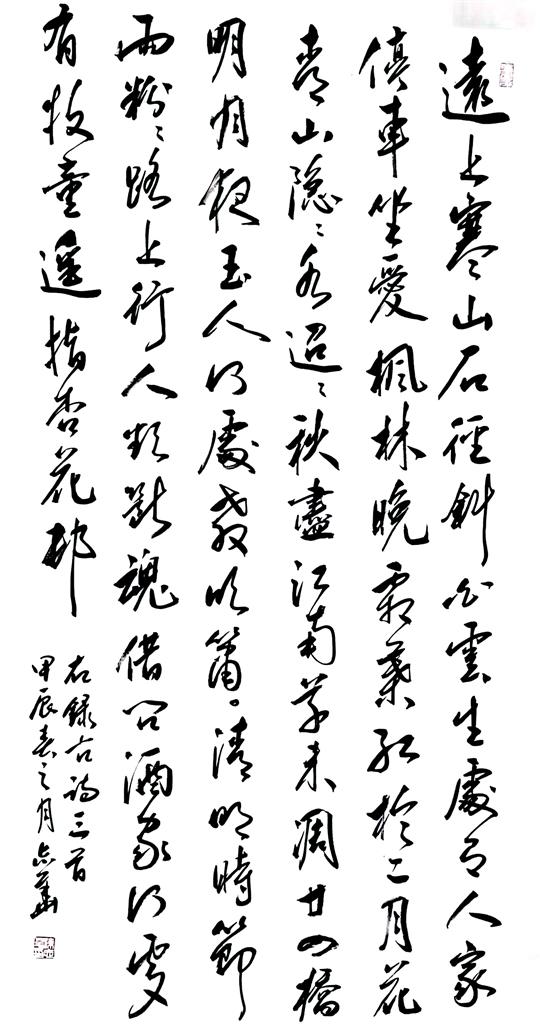 遠上寒山石徑斜白雲生處有人家
停車坐愛楓林晚霜葉紅於二月花
青山隱〻水迢〻秋盡江南草未凋廿四橋
明月夜玉人何處教吹簫。清明時節
雨粉〻路上行人欲斷魂借問酒家何處
有牧童遥指杏花邨
右錄古詩三首
甲辰春之月